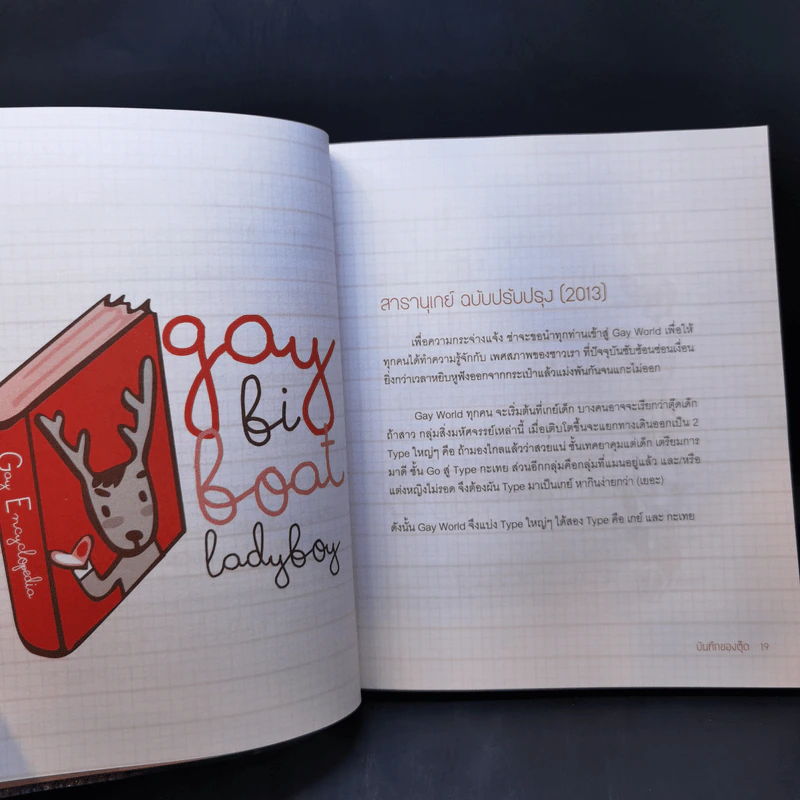 Gay Encyclopedia
gay
bi
boat
ladyboy
สารานุเกย์ ฉบับปรับปรุง (2013)
เพื่อความกระจ่างแจ้ง ข่าจะขอนำทุกท่านเข้าสู่ Gay World เพื่อให้
ทุกคนได้ทำความรู้จักกับ เพศสภาพของชาวเรา ที่ปัจจุบันซับซ้อนซ่อนเงื่อน
ยิ่งกว่าเวลาหยิบหูฟังออกจากกระเป๋าแล้วแม่งพันกันจนแกะไม่ออก
Gay World ทุกคน จะเริ่มต้นที่เกย์เด็ก บางคนอาจจะเรียกว่าตุ๊ดเด็ก
ถ้าสาว กลุ่มสิ่งมหัศจรรย์เหล่านี้ เมื่อเติบโตขึ้นจะแยกทางเดินออกเป็น 2
Type ใหญ่ๆ คือ ถ้ามองไกลแล้วว่าสวยแน่ ชั้นเทคยาคุมแต่เด็ก เตรียมการ
มาดี ชั้น Go สู่ Type กะเทย ส่วนอีกกลุ่มคือกลุ่มที่แมนอยู่แล้ว และ/หรือ
แต่งหญิงไม่รอด จึงต้องผัน Type มาเป็นเกย์ หากินง่ายกว่า (เยอะ)
ดังนั้น Gay World จึงแบ่ง Type ใหญ่ๆ ได้สอง Type คือ เกย์ และ กะเทย
บันทึกของตุ๊ด 19